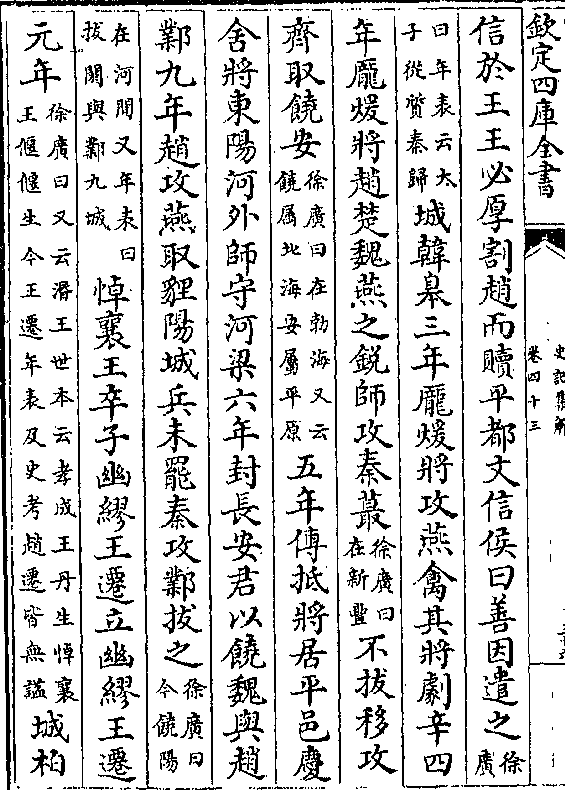 欽定四庫全書
史記集解
卷四十三
信於王王必厚割趙而贖平都文信侯曰善因遣之徐廣
曰年表云太子從質秦歸城韓皋三年龐煖將攻燕禽其將劇辛四
年龐煖將趙楚魏燕之銳師攻秦蕞徐廣曰在新豐不拔移攻
齊取饒安徐廣曰在勃海又云饒属北海安屬平原五年傅抵將居平邑慶
舍將東陽河外師守河梁六年封長安君以饒魏與趙
鄴九年趙攻燕取貍陽城兵未罷秦攻鄴拔之徐廣曰今饒陽
在河間又年表曰拔閼與鄴九城悼襄王卒子幽繆王遷立幽繆王遷
元年徐廣曰又云湣王世本云孝成王丹生悼襄王偃偃生今王遷年表及史考趙遷皆無諡城柏